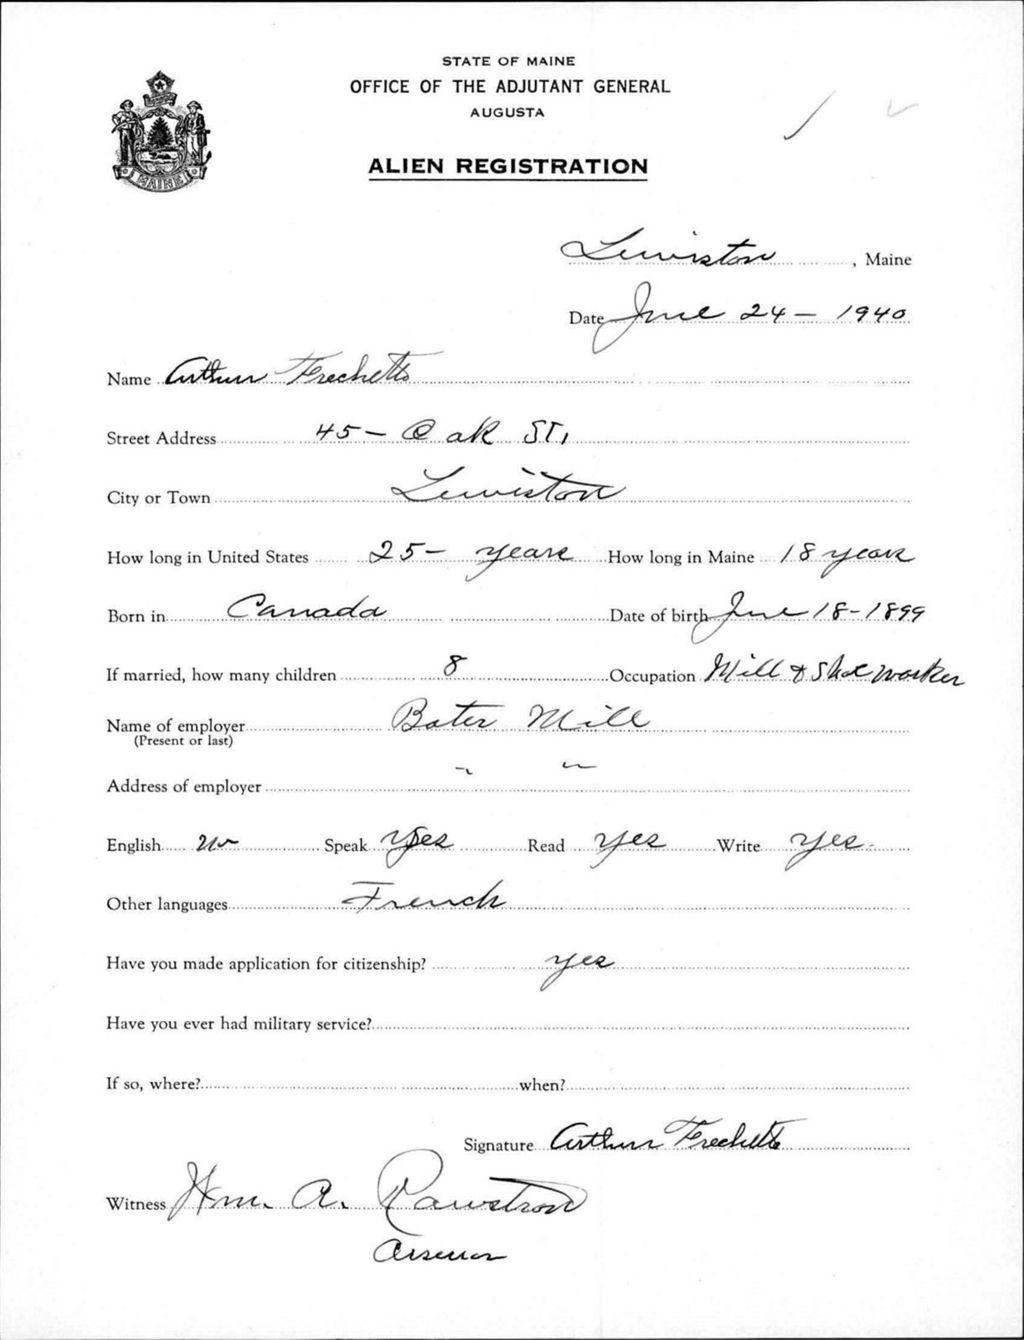 STATE OF MAINE
OFFICE OF THE ADJUTANT GENERAL
AUGUSTA
ALIEN REGISTRATION
MAINE
Lewiston, Maine
Date June 24 - 1940
Name Arthur Frechette
Street Address 45 - Oak St,
City or Town Lewiston
How long in United States 25 - years How long in Maine 18 years
Born in Canada Date of birth June 18 - 1899
If married, how many children 8 Occupation Mill & Shoe worker
Name of employer Bates Mill
(Present or last)
Address of employer " "
English Speak Yes Read Yes Write Yes.
Other languages French
Have you made application for citizenship? yes
Have you ever had military service?
If so, where? when?
Signature Arthur Frechette
Witness Wm. A. Rawstron
Assessor